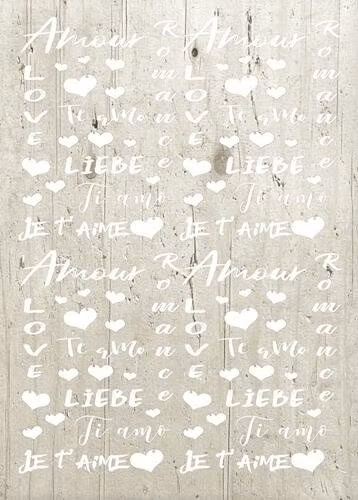 Amour Amour
LOVE Romance LOVE Romance
Te amo Te amo
LIEBE LIEBE
Ti amo Ti amo
JE T'AIME JE T'AIME
Amour Amour
LOVE Romance LOVE Romance
Te amo Te amo
LIEBE LIEBE
Ti amo Ti amo
JE T'AIME JE T'AIME